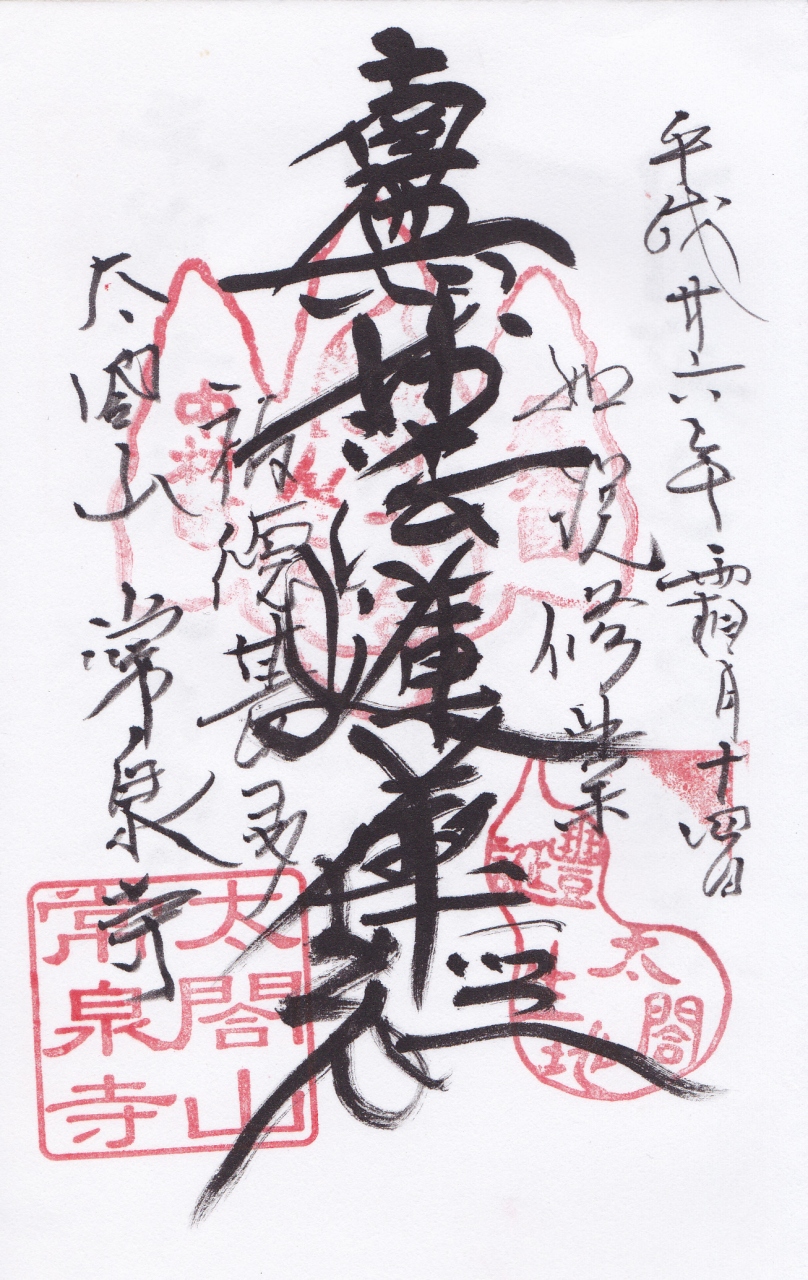 平成廿六年霜月十四日
如説修業
南無妙法蓮華経
福徳甚多
太閤山 常泉寺
豊
太閤
生地
太閤山
常泉寺